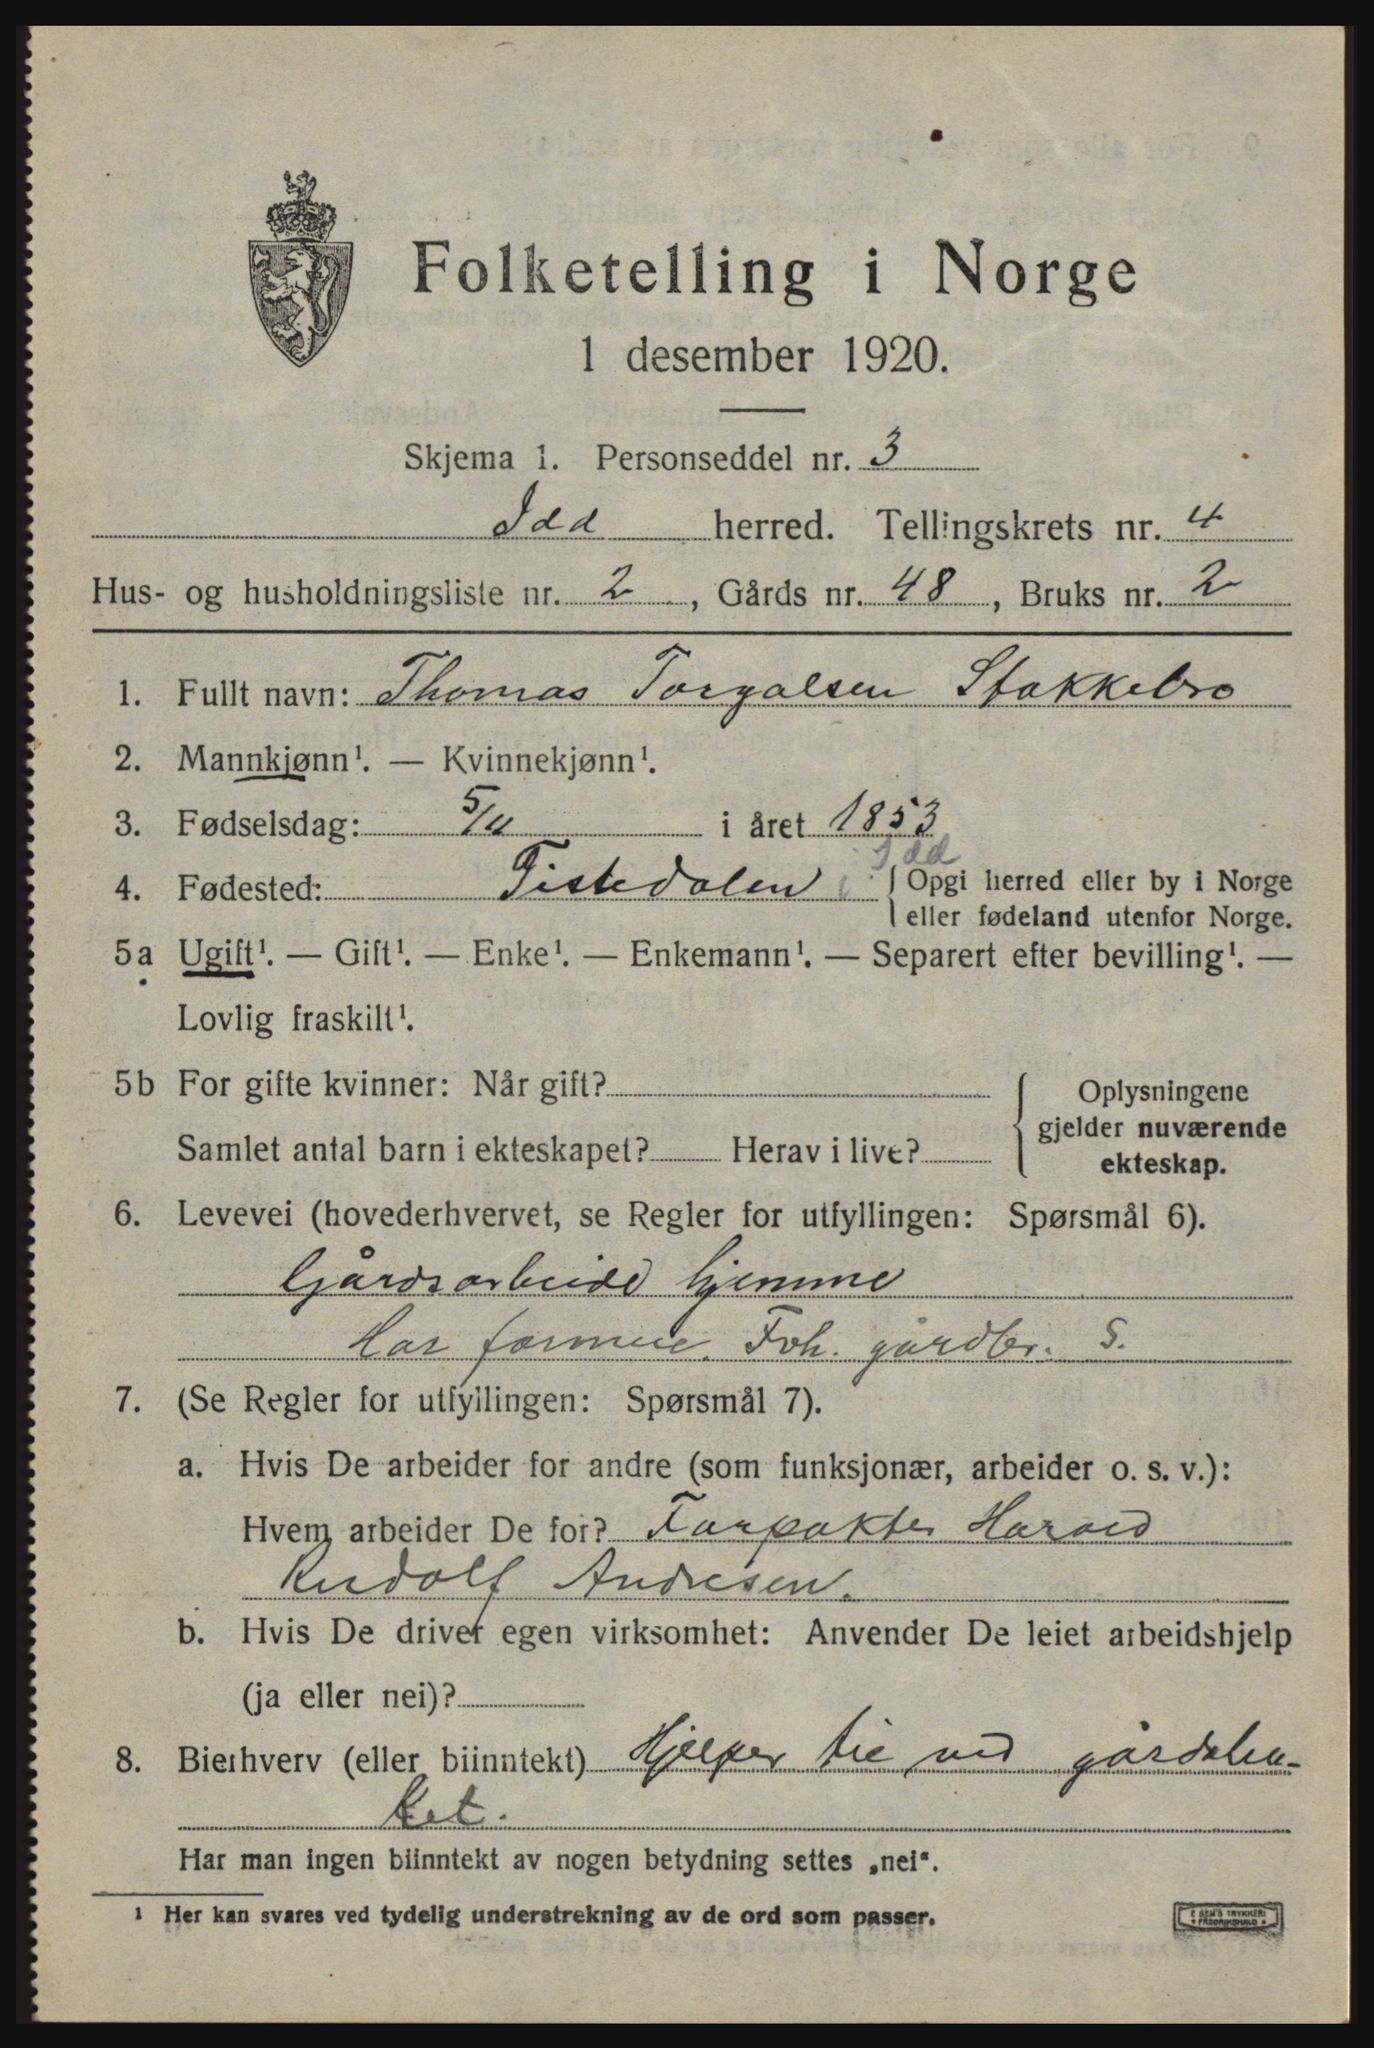 Folketelling i Norge
1 desember 1920.
Skjema 1. Personseddel nr. 3
Idd herred. Tellingskrets nr. 4
Hus- og husholdningsliste nr. 2, Gårds nr. 48, Bruks nr. 2
1. Fullt navn: Thomas Torgalsen Stokkebro
2. Mannkjønn¹. — Kvinnekjønn¹.
3. Fødselsdag: 5/11 i året 1853
Idd
4. Fødested: Tistedalen i { Opgi herred eller by i Norge
eller fødeland utenfor Norge.
5a Ugift¹. — Gift¹. — Enke¹. — Enkemann¹. — Separert efter bevilling¹. —
Lovlig fraskilt¹.
5b For gifte kvinner: Når gift?
Samlet antal barn i ekteskapet? Herav i live?
Oplysningene
gjelder nuværende
ekteskap.
6. Levevei (hovederhvervet, se Regler for utfyllingen: Spørsmål 6).
Gårdsarbeide hjemme
Har formue. Fvh. gårdbr. S.
7. (Se Regler for utfyllingen: Spørsmål 7).
a. Hvis De arbeider for andre (som funksjonær, arbeider o. s. v.):
Hvem arbeider De for? Forpakter Harald
Rudolf Andresen.
b. Hvis De driver egen virksomhet: Anvender De leiet arbeidshjelp
(ja eller nei)?
8. Bierhverv (eller biinntekt) Hjelper til ved
Har man ingen biinntekt av nogen betydning settes „nei“.
¹ Her kan svares ved tydelig understrekning av de ord som passer.
E SEM'S TRYKKERI
FREDRIKSHALD